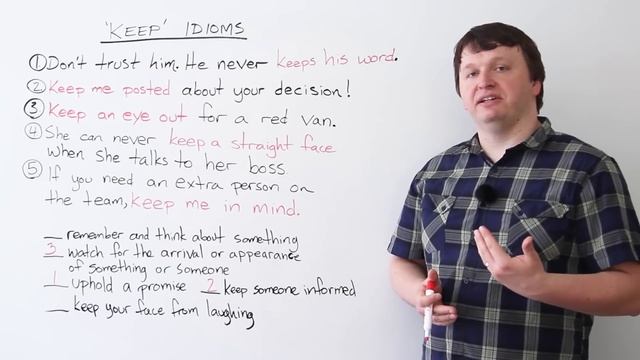 'KEEP' IDIOMS
① Don't trust him. He never keeps his word.
② Keep me posted about your decision!
③ Keep an eye out for a red van.
④ She can never keep a straight face
when she talks to her boss.
⑤ If you need an extra person on
the team, keep me in mind.
__ remember and think about something
3 watch for the arrival or appearance
of something or someone
1 uphold a promise 2 keep someone informed
__ keep your face from laughing